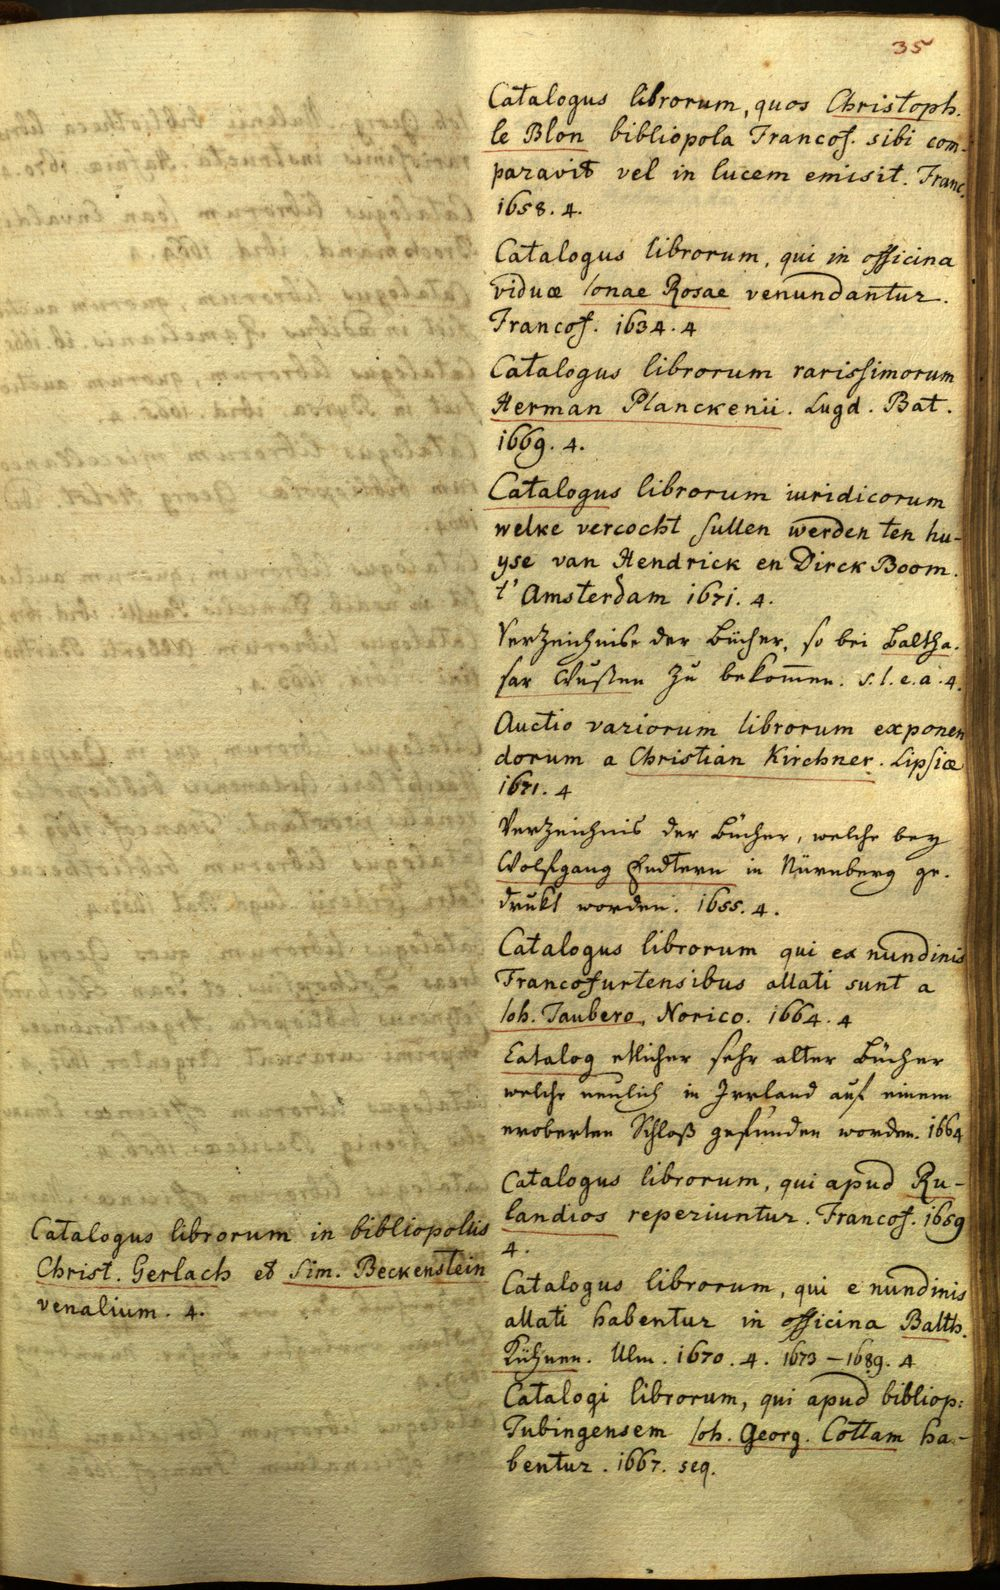 35
Catalogus librorum, quos Christoph.
le Blon bibliopola Francof. sibi com-
paravit vel in lucem emisit. Franc.
1658. 4.
Catalogus librorum, qui in officina
viduæ Ionae Rosae venundantur.
Francof. 1634. 4
Catalogus librorum rarissimorum
Herman Planckenii. Lugd. Bat.
1669. 4.
Catalogus librorum iuridicorum
welke vercocht sullen werden ten hu-
yse van Hendrick en Dirck Boom.
t' Amsterdam 1671. 4.
Verzeichniße der Bücher, so bei Baltha-
sar Wußten zu bekom̄en. s. l. e. a. 4.
Auctio variorum librorum exponen
dorum a Christian Kirchner. Lipsiæ
1671. 4
Verzeichnis der Bücher, welche bey
Wolfgang Endtern in Nürnberg ge-
drukt worden. 1655. 4.
Catalogus librorum qui ex nundinis
Francofurtensibus allati sunt a
Ioh. Taubero, Norico. 1664. 4
Catalog etlicher sehr alter Bücher
welche neulich in Irrland auf einem
eroberten Schloß gefunden worden. 1664
Catalogus librorum, qui apud Ru-
landios reperiuntur. Francof. 1659
4.
Catalogus librorum in bibliopoliis
Christ. Gerlach et Sim. Beckenstein
venalium. 4.
Catalogus librorum, qui e nundinis
allati habentur in officina Balth.
Kühnen. Ulm. 1670. 4. 1673 – 1689. 4
Catalogi librorum, qui apud bibliop:
Tubingensem Ioh. Georg. Cottam ha-
bentur. 1667. seq.